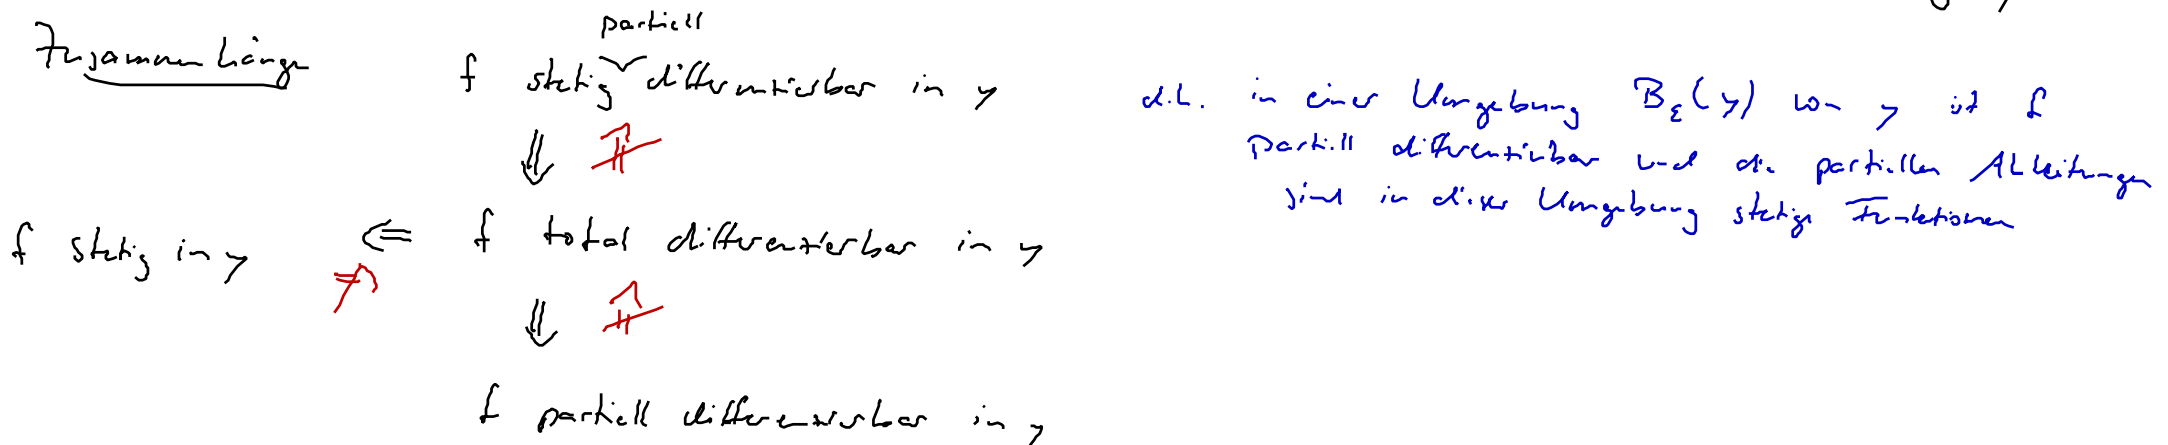 Zusammenhänge
partiell
f stetig differenzierbar in y
⇓ ⇑̸
f stetig in y ⇐ f total differenzierbar in y
⇏
⇓ ⇑̸
f partiell differenzierbar in y
d.h. in einer Umgebung B_ε(y) von y ist f
partiell differenzierbar und die partiellen Ableitungen
sind in dieser Umgebung stetige Funktionen